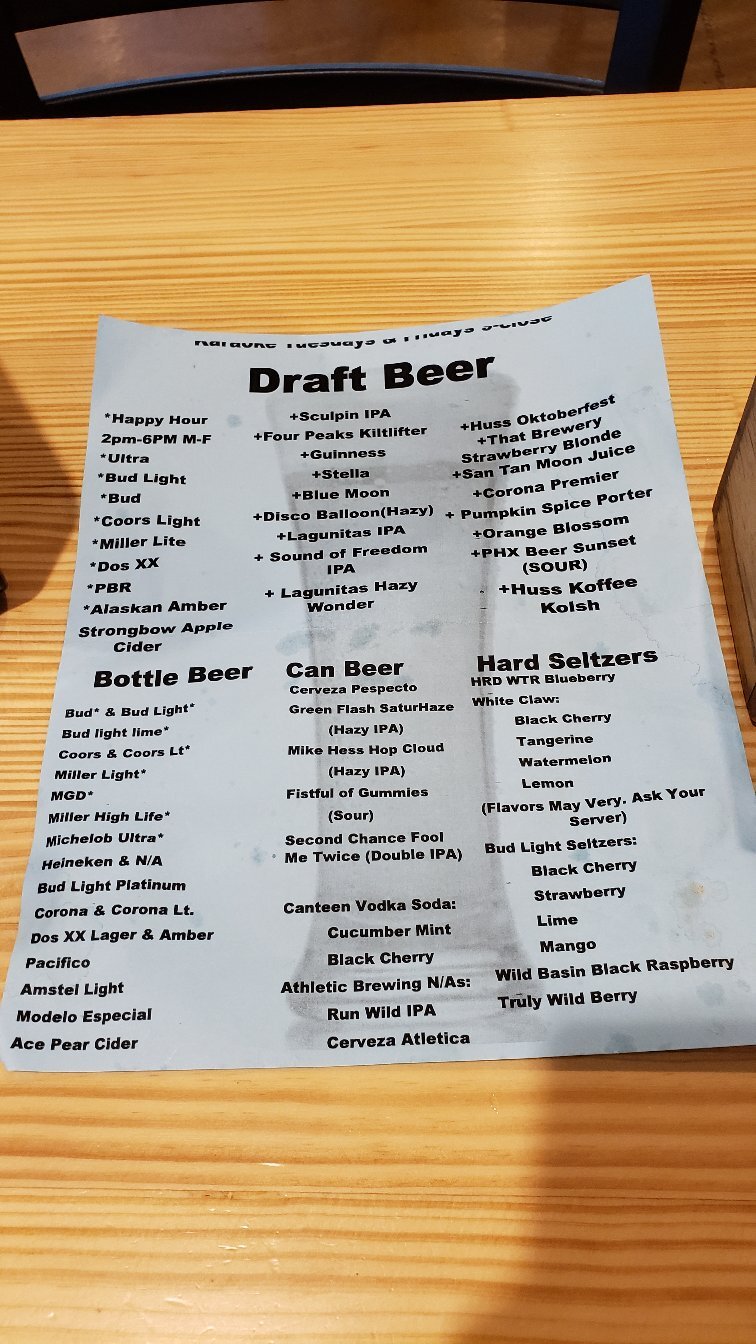 Karaoke Tuesdays & Fridays 9-Close
Draft Beer
*Happy Hour
2pm-6PM M-F
*Ultra
*Bud Light
*Bud
*Coors Light
*Miller Lite
*Dos XX
*PBR
*Alaskan Amber
Strongbow Apple
Cider
+Sculpin IPA
+Four Peaks Kiltlifter
+Guinness
+Stella
+Blue Moon
+Disco Balloon(Hazy)
+Lagunitas IPA
+ Sound of Freedom
IPA
+ Lagunitas Hazy
Wonder
+Huss Oktoberfest
+That Brewery
Strawberry Blonde
+San Tan Moon Juice
+Corona Premier
+ Pumpkin Spice Porter
+Orange Blossom
+PHX Beer Sunset
(SOUR)
+Huss Koffee
Kolsh
Bottle Beer
Bud* & Bud Light*
Bud light lime*
Coors & Coors Lt*
Miller Light*
MGD*
Miller High Life*
Michelob Ultra*
Heineken & N/A
Bud Light Platinum
Corona & Corona Lt.
Dos XX Lager & Amber
Pacifico
Amstel Light
Modelo Especial
Ace Pear Cider
Can Beer
Cerveza Pespecto
Green Flash SaturHaze
(Hazy IPA)
Mike Hess Hop Cloud
(Hazy IPA)
Fistful of Gummies
(Sour)
Second Chance Fool
Me Twice (Double IPA)
Canteen Vodka Soda:
Cucumber Mint
Black Cherry
Athletic Brewing N/As:
Run Wild IPA
Cerveza Atletica
Hard Seltzers
HRD WTR Blueberry
White Claw:
Black Cherry
Tangerine
Watermelon
Lemon
(Flavors May Very. Ask Your
Server)
Bud Light Seltzers:
Black Cherry
Strawberry
Lime
Mango
Wild Basin Black Raspberry
Truly Wild Berry